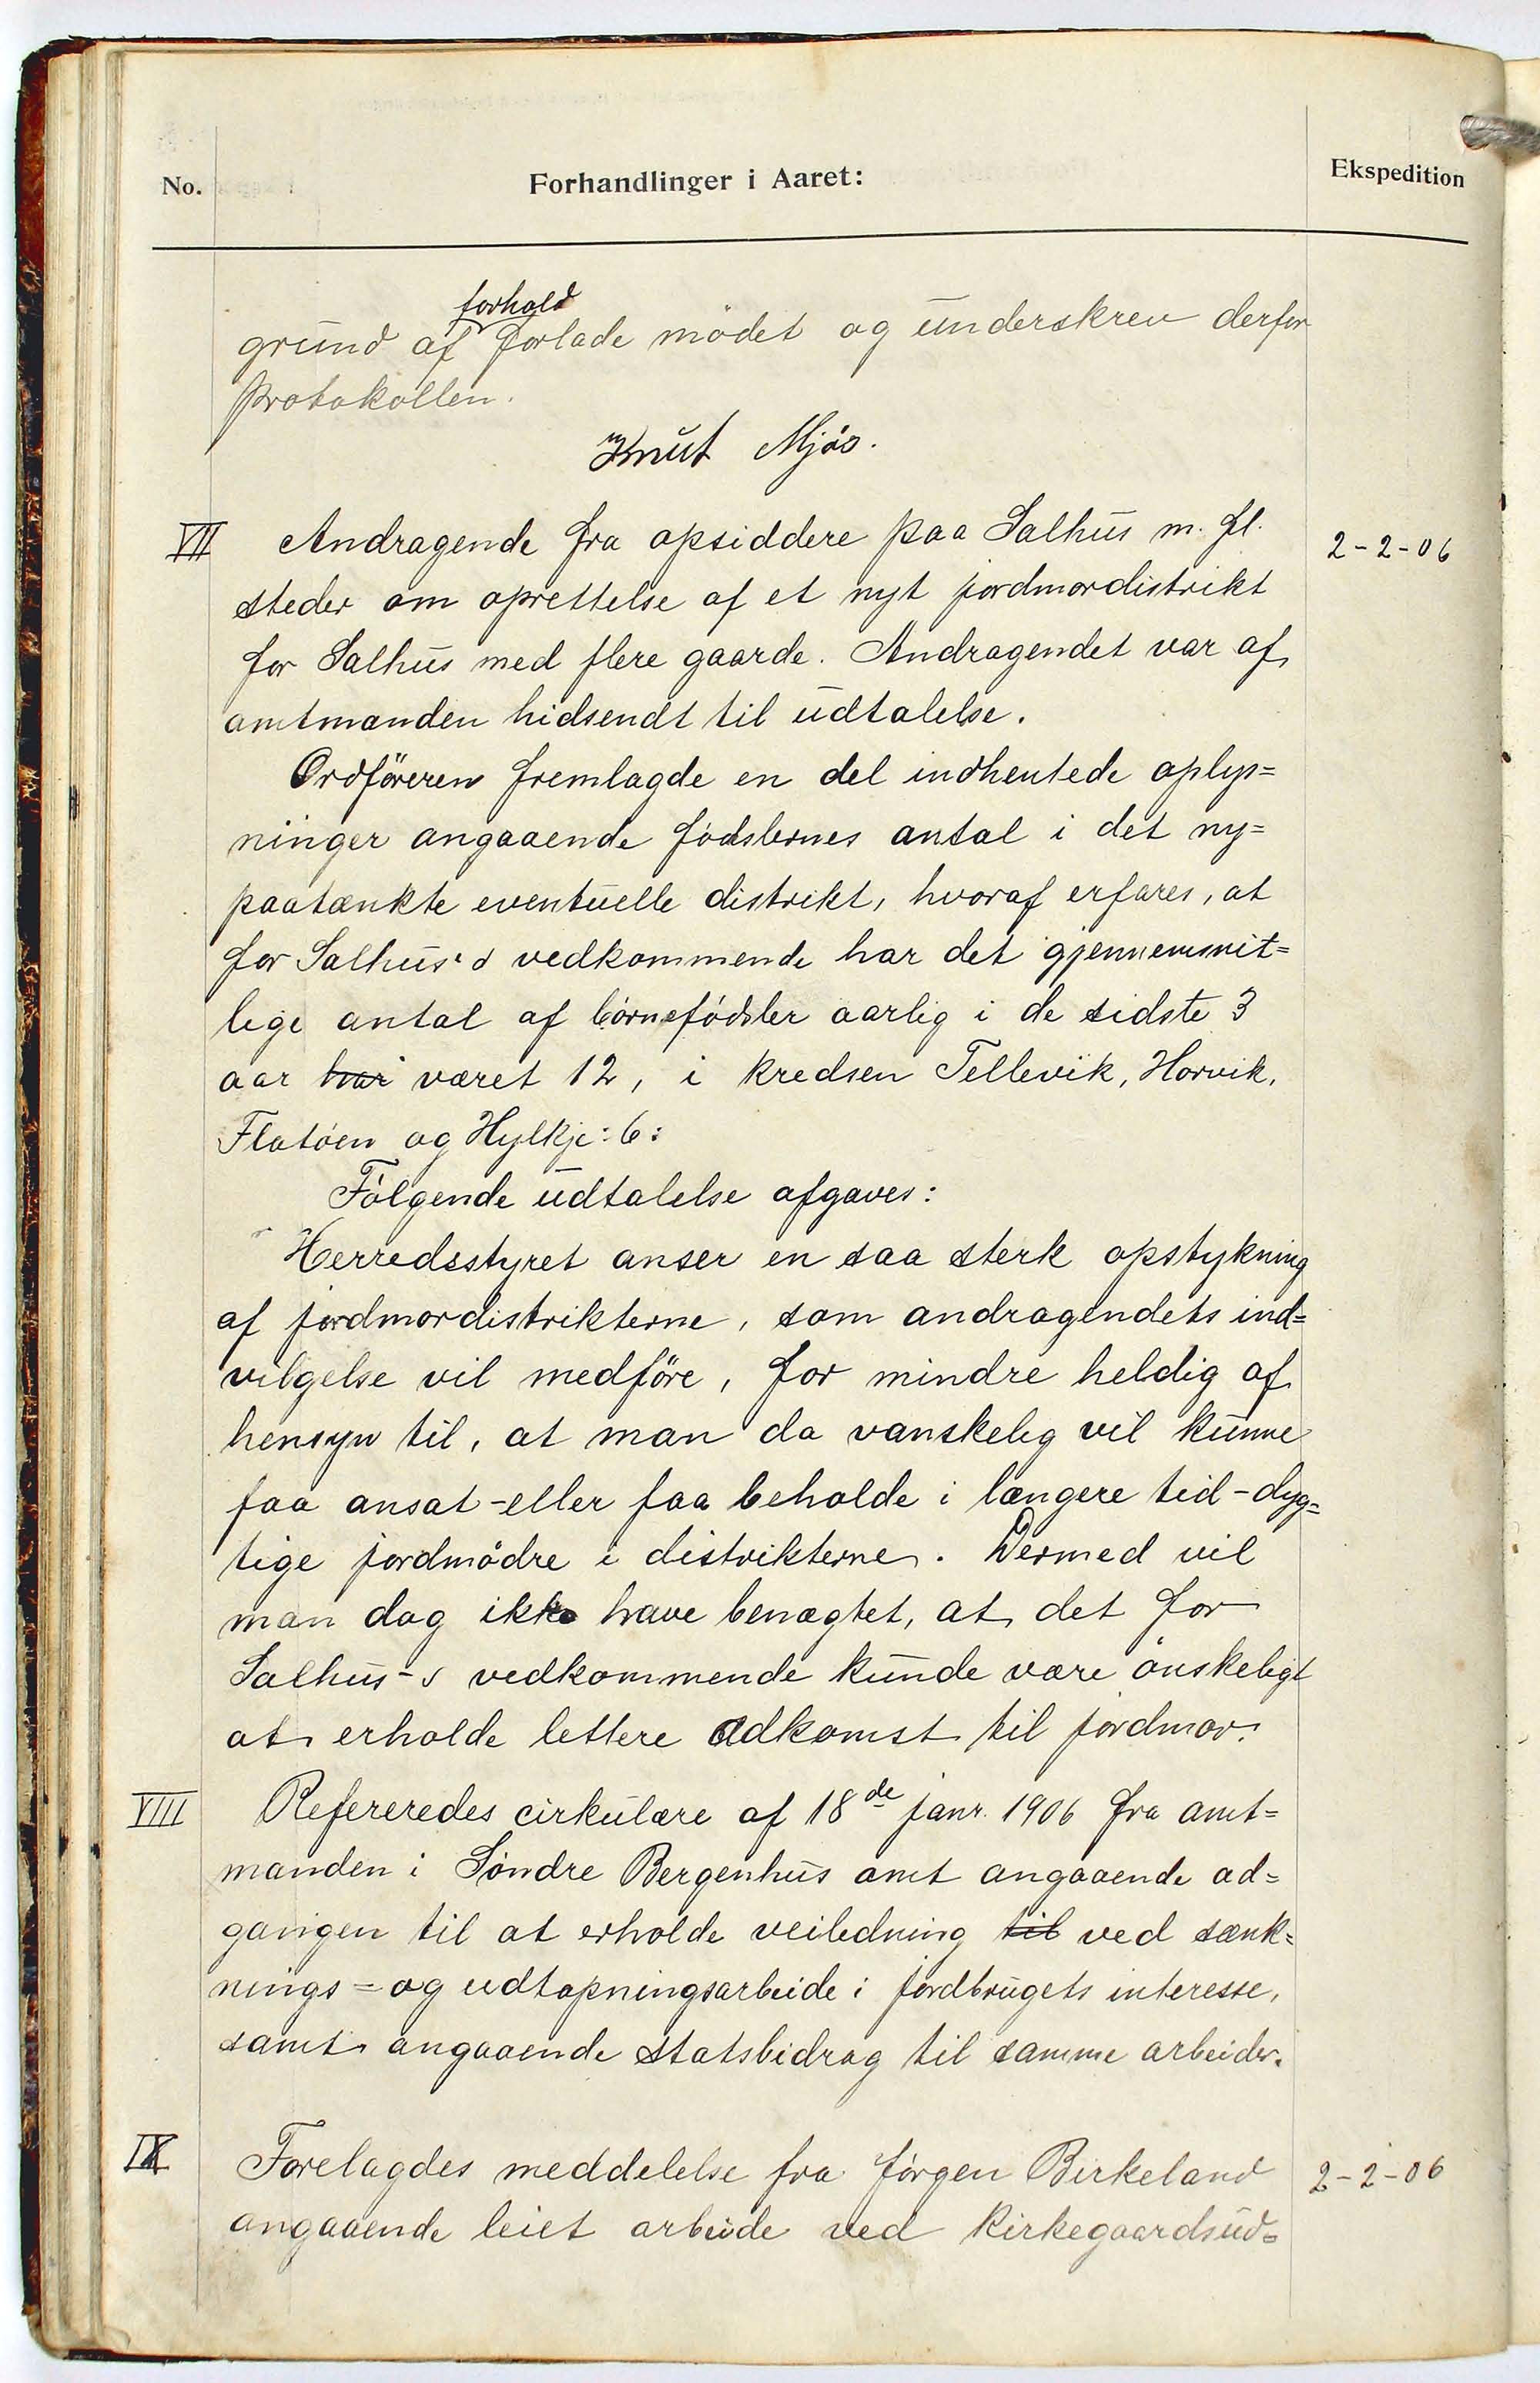 No.
Forhandlinger i Aaret:
Ekspedition
forhold
grund af forlade mödet og underskrev derfor
protokollen.
Knut Mjös.
VII Andragende fra opsiddere paa Salhus m. fl. 2-2-06
steder om oprettelse af et nyt jordmordistrikt
for Salhus med flere gaarde. Andragendet var af
amtmanden hidsendt til udtalelse.
Ordföreren fremlagde en del indhentede oplys=
ninger angaaende födslernes antal i det ny=
paatænkte eventuelle distrikt, hvoraf erfares, at
for Salhus's vedkommende har det gjennemsnit=
lige antal af börnefödsler aarlig i de sidste 3
aar har været 12, i kredsen Tellevik, Horvik,
Flatöen og Hylkje: 6:
Fölgende udtalelse afgaves:
Herredsstyret anser en saa sterk opstykning
af jordmordistrikterne, som andragendets ind=
vilgelse vil medföre, for mindre heldig af
hensyn til, at man da vanskelig vil kunne
faa ansat - eller faa beholde i længere tid - dyg=
tige jordmödre i distrikterne. Dermed vil
man dog ikke have benægtet, at det for
Salhus-s vedkommende kunde være önskeligt
at erholde lettere adkomst til jordmor.
VIII Refereredes cirkulære af 18de janr. 1906 fra amt=
manden i Söndre Bergenhus amt angaaende ad=
gangen til at erholde veiledning til ved sænk=
nings= og udtapningsarbeide i jordbrugets interesse,
samt angaaende statsbidrag til samme arbeider.
IX Forelagdes meddelelse fra Jörgen Birkeland 2-2-06
angaaende leiet arbeide ved kirkegaardsud=